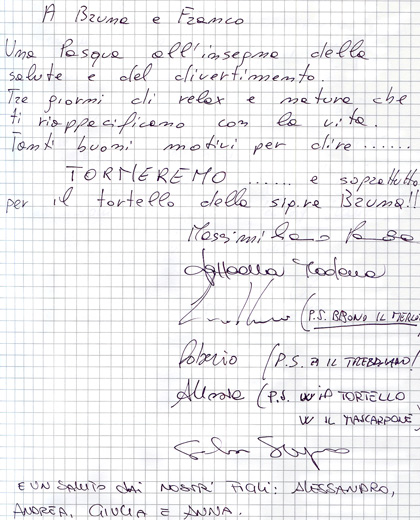 A Bruna e Franco
Una Pasqua all'insegna della
salute e del divertimento.
Tre giorni di relax e natura che
ti riappacificano con la vita.
Tanti buoni motivi per dire ......
TORNEREMO ...... e soprattutto
per il tortello della sig.ra Bruna!!
Massimiliano
Raffaella Modena
(P.S. BUONO IL MERLO
Roberto (P.S. IL TREBBIANO!
Alessia (P.S. W IL TORTELLO
W IL MASCARPONE)
E UN SALUTO dai NOSTRI FIGLI: ALESSANDRO,
ANDREA, GIULIA E ANNA.